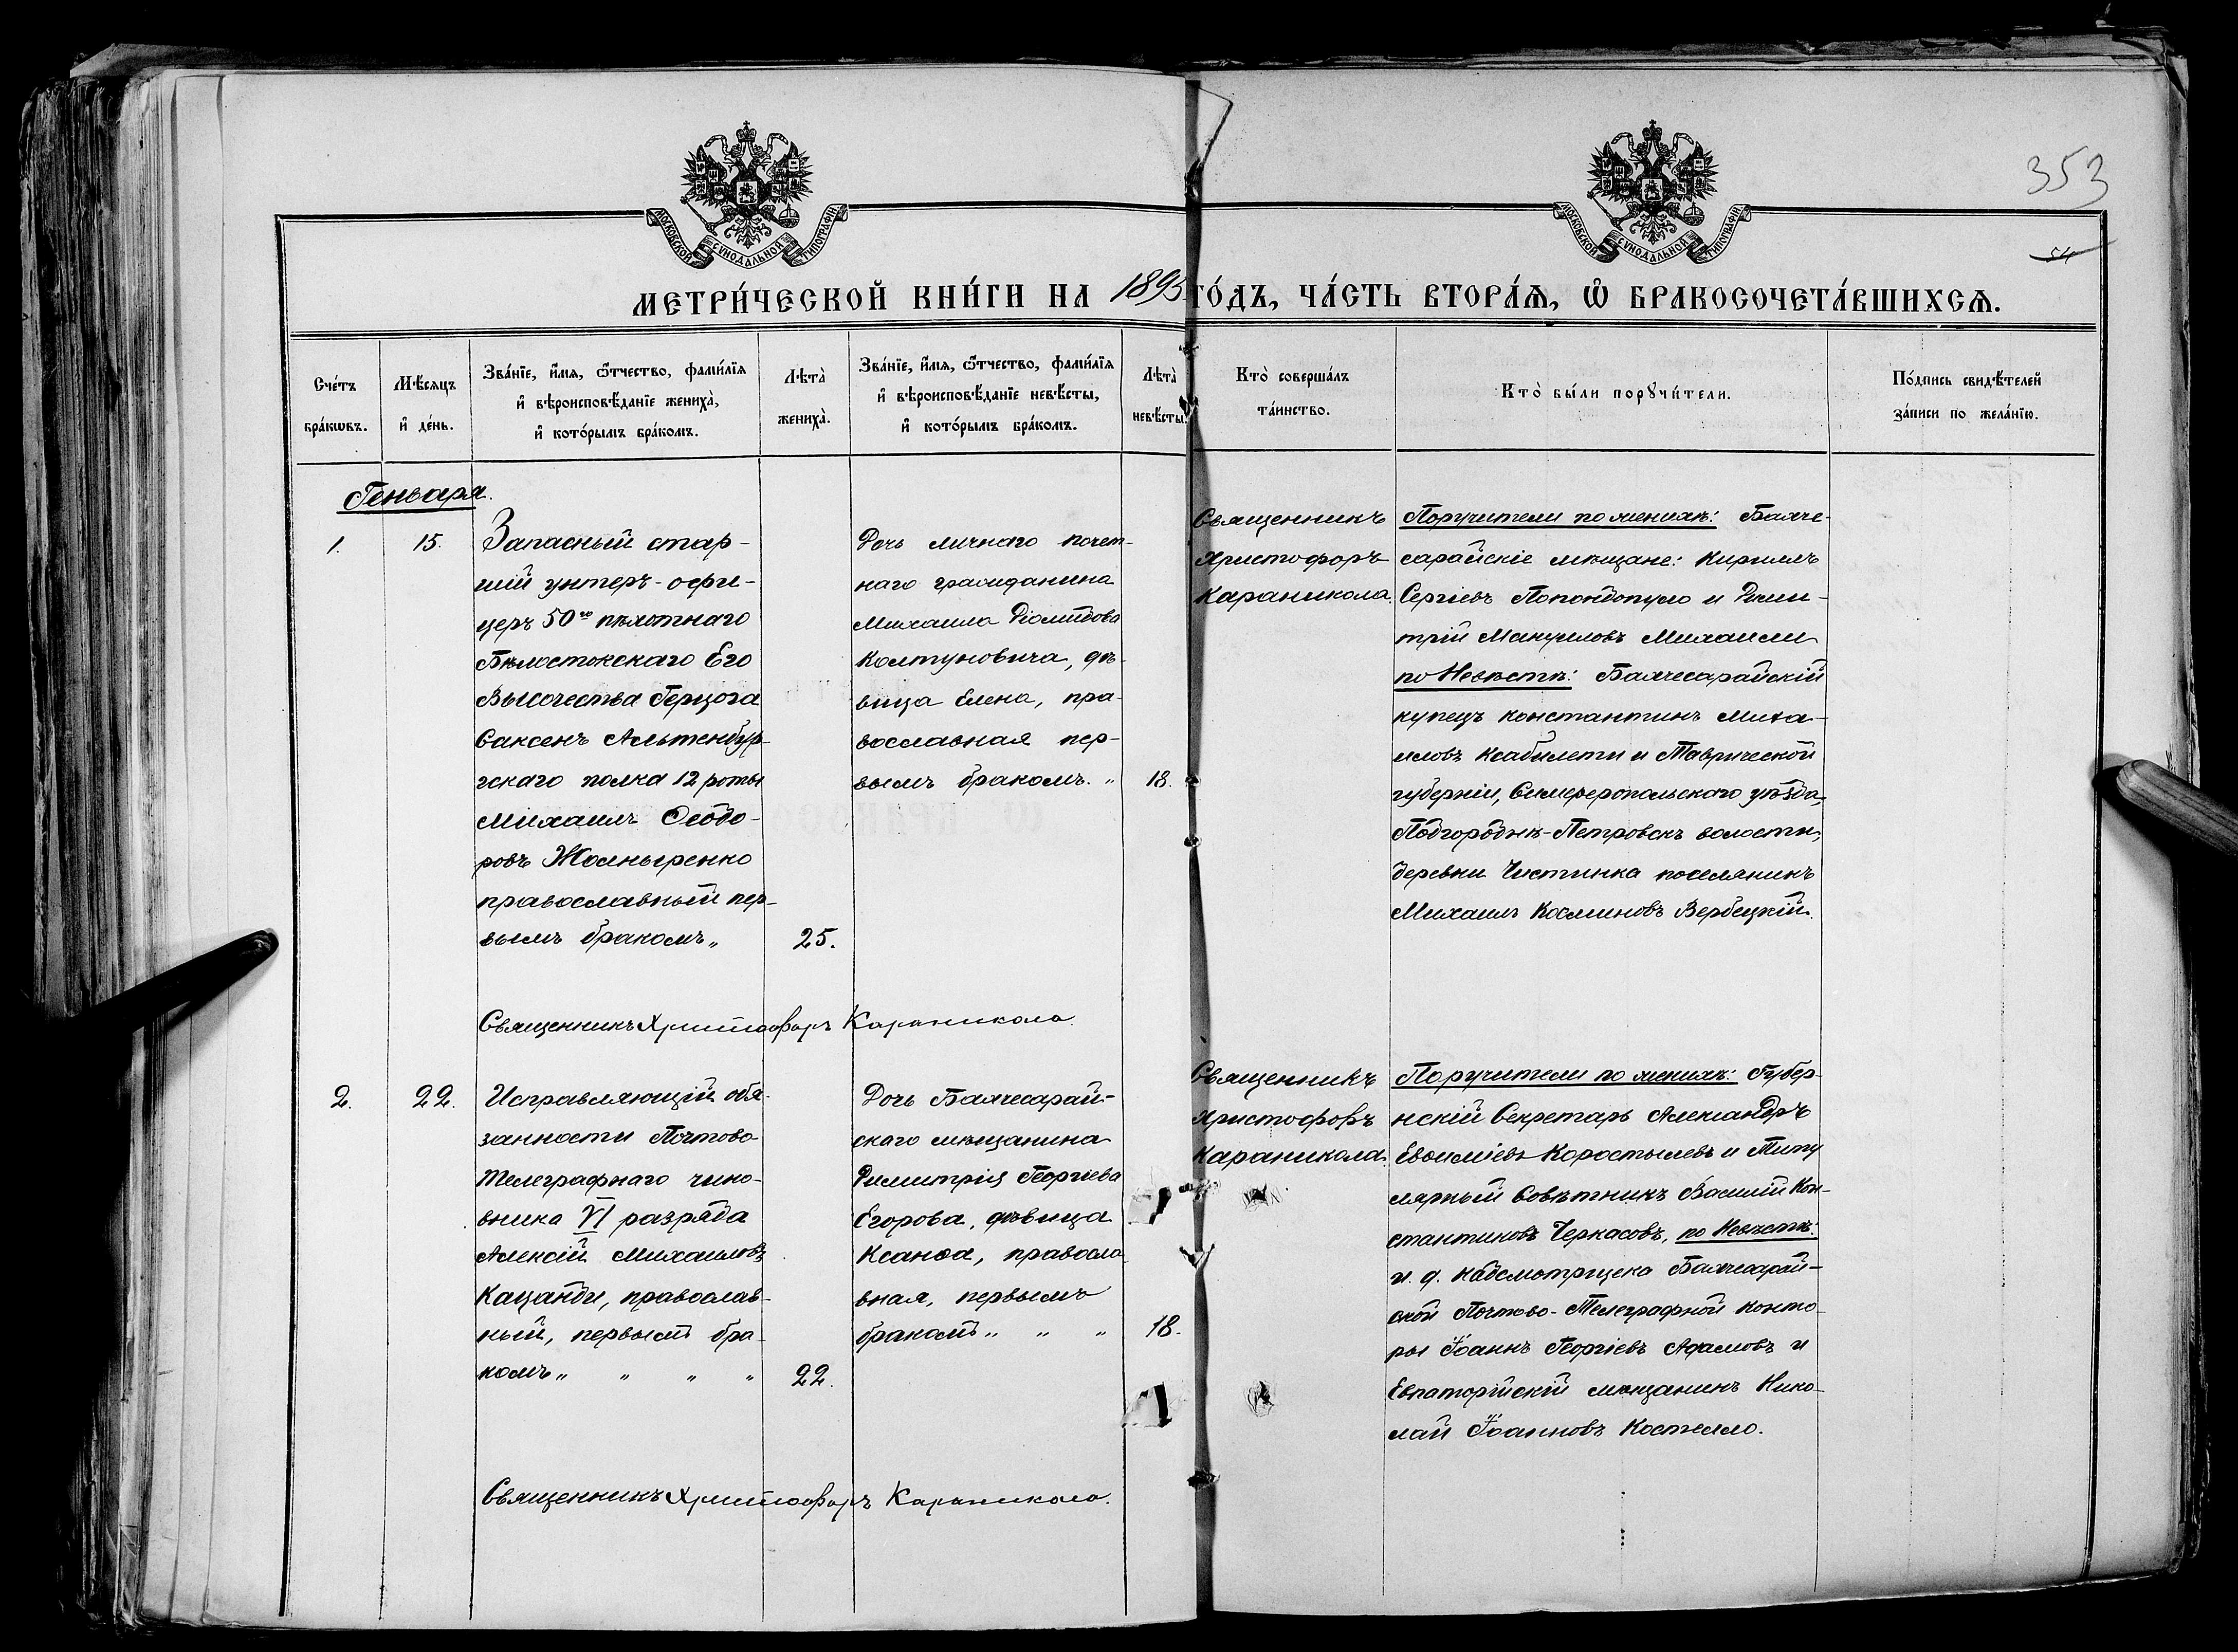 353
54
МОСКОВСКОЙ СУНОДАЛЬНОЙ ТИПОГРАФІИ
МОСКОВСКОЙ СУНОДАЛЬНОЙ ТИПОГРАФІИ
МЕТРИ́ЧЕСКОЙ КНИ́ГИ НА 1895 ГО́ДЪ, ЧА́СТЬ ВТОРА́Я, Ѽ БРАКОСОЧЕТА́ВШИХСѦ.
Сче́тъ
бра́кѡвъ.
Мѣ́сяцъ
и҆ де́нь.
Зва́нїе, и҆́мя, ѻ҆́тчество, фами́лїя
и҆ вѣроисповѣ́данїе жениха̀,
и҆ кото́рымъ бра́комъ.
Лѣта̀
жениха̀.
Зва́нїе, и҆́мя, ѻ҆́тчество, фами́лїя
и҆ вѣроисповѣ́данїе невѣ́сты,
и҆ кото́рымъ бра́комъ.
Лѣта̀
невѣ́сты.
Кто̀ соверша́лъ
та́инство.
Кто̀ бы́ли порꙋчи́тели.
По́дпись свидѣ́телей
за́писи по жела́нїю.
Генваря.
1.
15.
Запасный стар-
шій унтеръ-офи-
церъ 50го пѣхотнаго
Бѣлостокскаго Его
Высочества Герцога
Саксенъ Альтенбур-
гскаго полка 12 роты
Михаилъ Ѳеодо-
ровъ Жолныренко
православный пер-
вымъ бракомъ „
25.
Дочь личнаго почет-
наго гражданина
Михаила Діомидова
Колтуновича, дѣ-
вица Елена, пра-
вославная пер-
вымъ бракомъ. „
18.
Священникъ
Христофоръ
Караникола.
Поручители по женихѣ: Бахче-
сарайскіе мѣщане: Кириллъ
Сергіевъ Попондопуло и Дими-
трій Мануиловъ Михаили
по Невѣстѣ: Бахчесарайскій
купецъ Константинъ Миха-
иловъ Ксабилети и Таврической
губерніи, Симферопольскаго уѣзда,
Подгородне-Петровск волости,
деревни Чистинка поселянинъ
Михаилъ Косминовъ Вербецкій.
Священникъ Христофоръ Караникола.
2.
22.
Исправляющій обя-
занности Почтово
Телеграфнаго чино-
вника VI разряда
Алексій Михаиловъ
Кацанди, православ-
ный, первымъ бра-
комъ „ „ „ „
22.
Дочь Бахчесарай-
скаго мѣщанина
Димитрія Георгіева
Егорова, дѣвица
Ксанѳа, правосла
вная, первымъ
бракомъ „ „ „
18.
Священникъ
Христофоръ
Караникола.
Поручители по женихѣ: Губер-
нскій Секретарь Александръ
Евѳиміевъ Коростылевъ и Титу
лярный Совѣтникъ Василій Кон-
стантиновъ Черкасовъ, по Невѣстѣ:
и. д. надсмотрщика Бахчесарай-
ской Почтово-Телеграфной конто-
ры Іоаннъ Георгіевъ Адамовъ и
Евпаторійскій мѣщанинъ Нико-
лай Іоанновъ Костелло.
Священникъ Христофоръ Караникола.